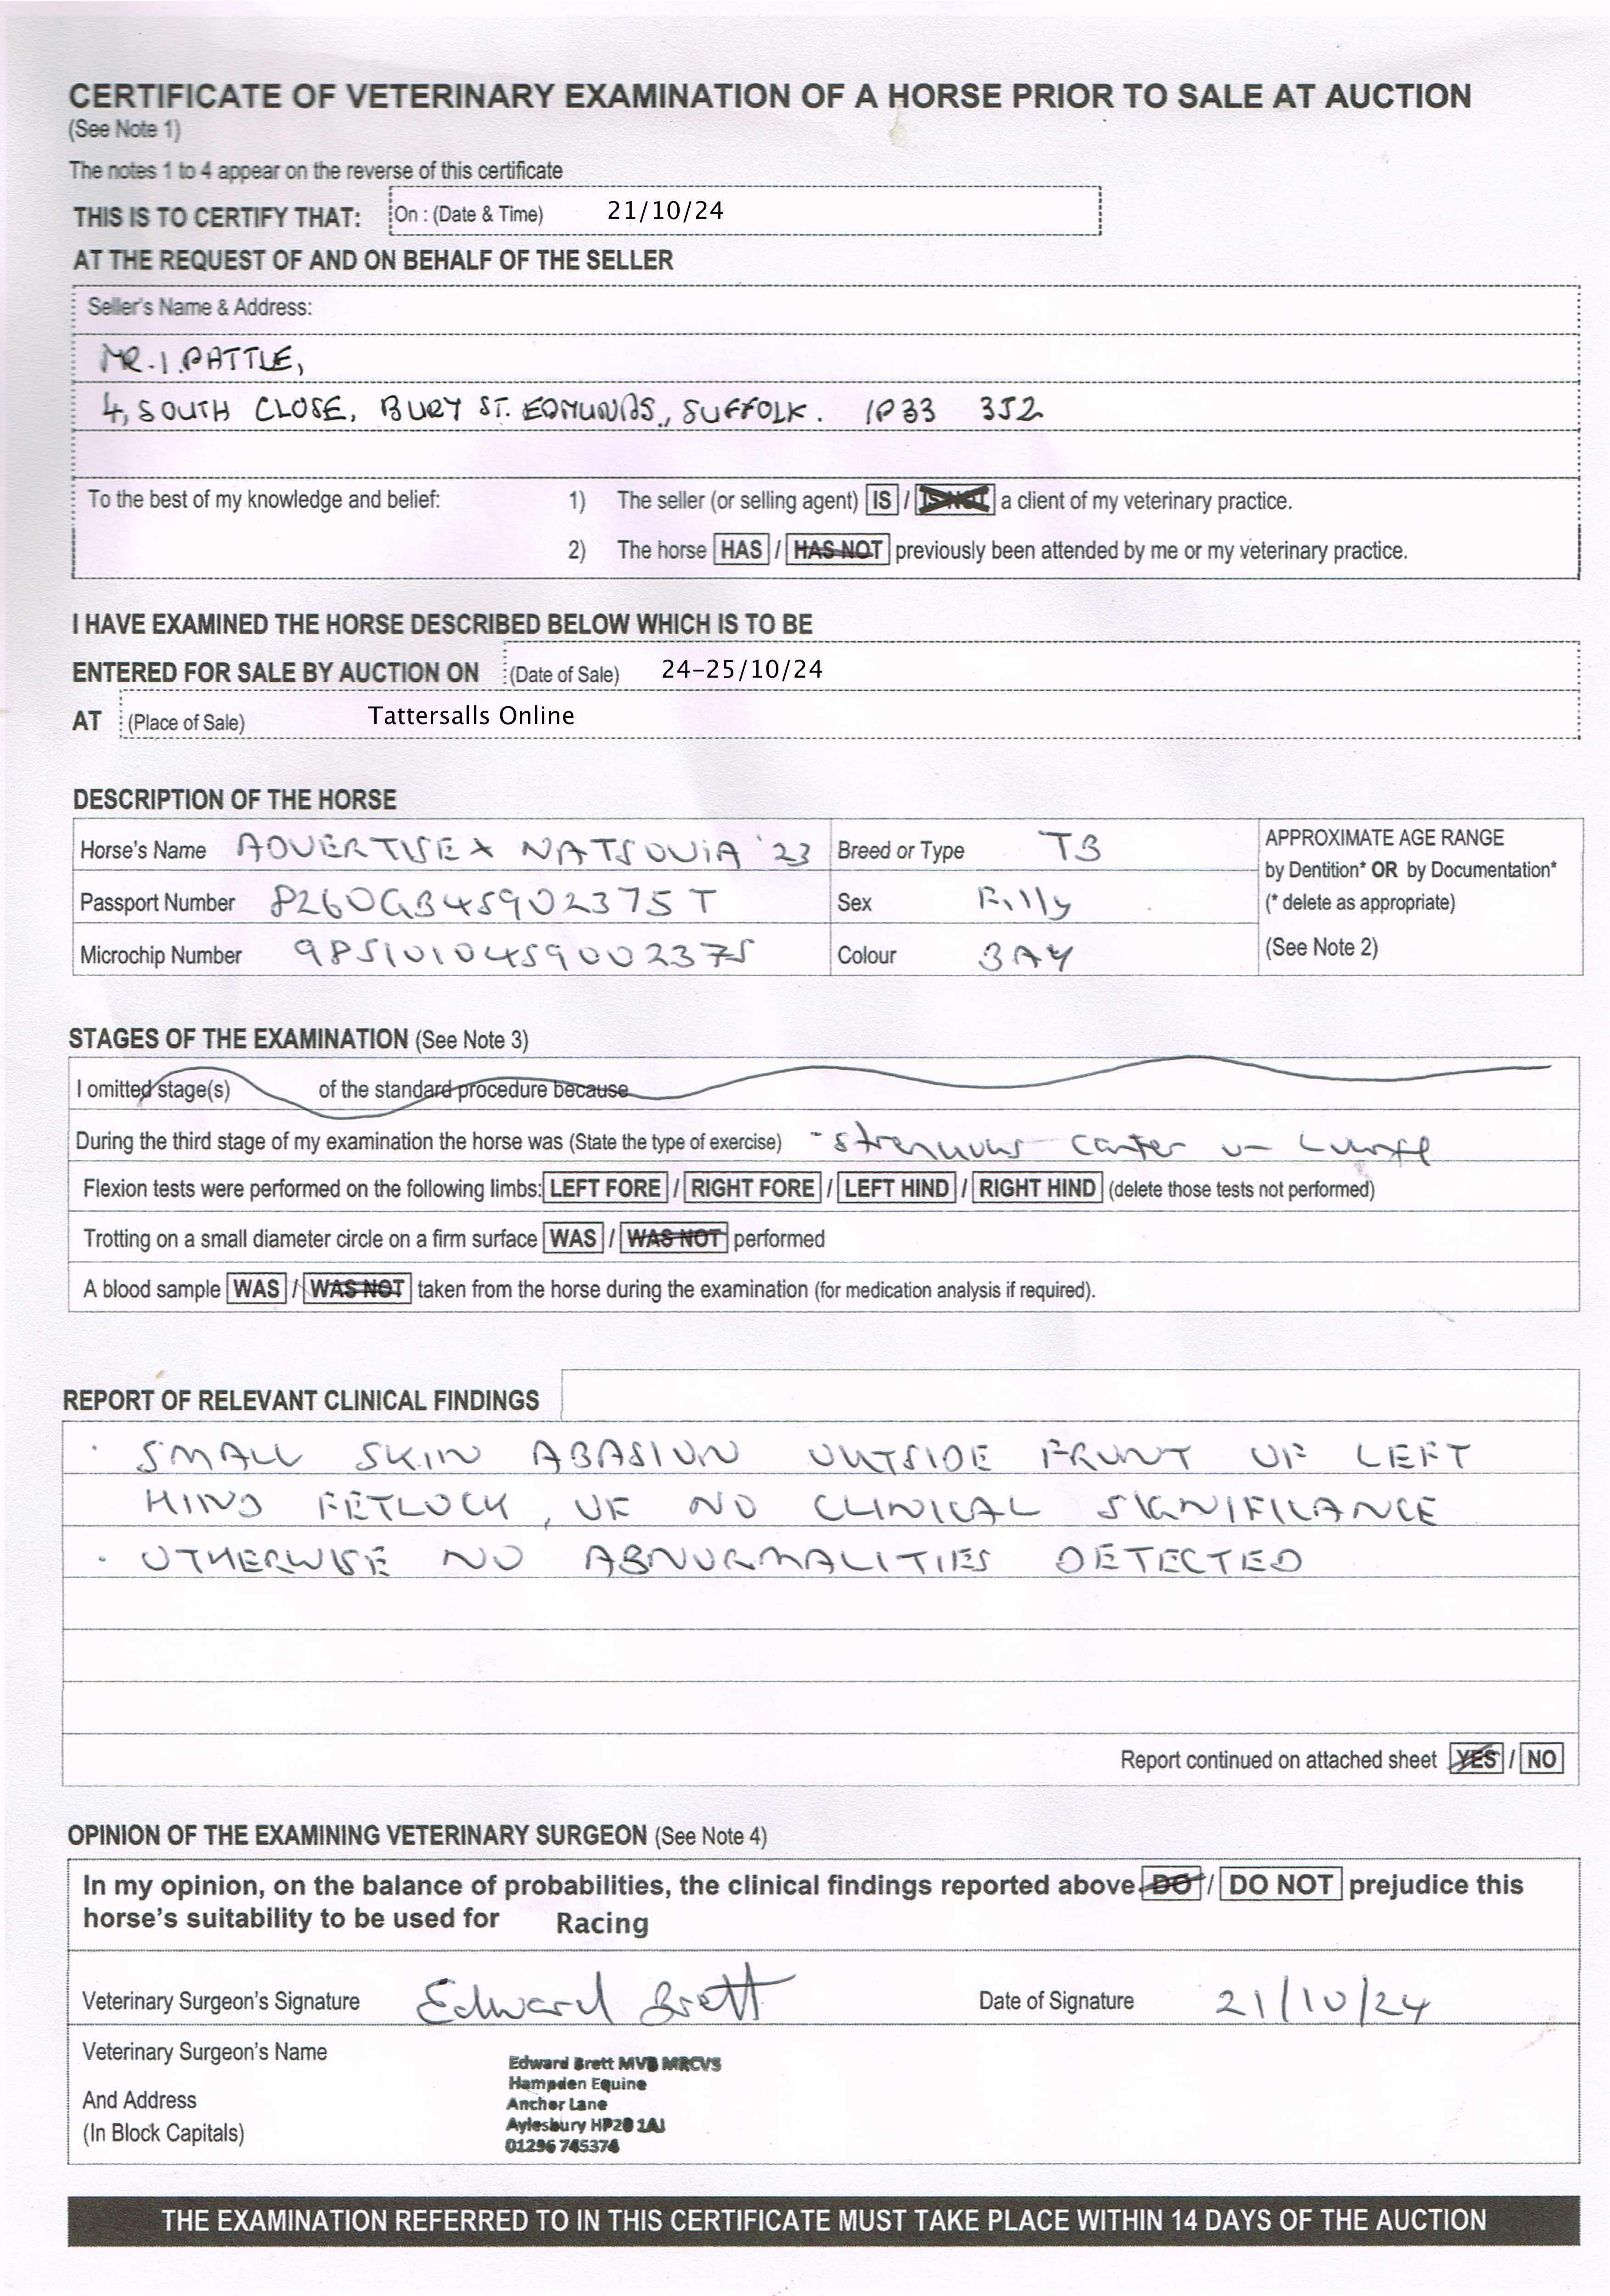 CERTIFICATE OF VETERINARY EXAMINATION OF A HORSE PRIOR TO SALE AT AUCTION
(See Note 1)
The notes 1 to 4 appear on the reverse of this certificate
THIS IS TO CERTIFY THAT: On : (Date & Time) 21/10/24
AT THE REQUEST OF AND ON BEHALF OF THE SELLER
Seller's Name & Address:
MR. I. PATTLE,
4, SOUTH CLOSE, BURY ST. EDMUNDS, SUFFOLK. IP33 3JZ
To the best of my knowledge and belief: 1) The seller (or selling agent) IS / IS NOT a client of my veterinary practice.
2) The horse HAS / HAS NOT previously been attended by me or my veterinary practice.
I HAVE EXAMINED THE HORSE DESCRIBED BELOW WHICH IS TO BE
ENTERED FOR SALE BY AUCTION ON (Date of Sale) 24-25/10/24
AT (Place of Sale) Tattersalls Online
DESCRIPTION OF THE HORSE
Horse's Name ADVERTISE X NATSOVIA '23 Breed or Type TB APPROXIMATE AGE RANGE
by Dentition* OR by Documentation*
Passport Number 8260GB45902375T Sex Filly (* delete as appropriate)
Microchip Number 985101045902375 Colour BAY (See Note 2)
STAGES OF THE EXAMINATION (See Note 3)
I omitted stage(s) of the standard procedure because
During the third stage of my examination the horse was (State the type of exercise) - strenuous canter on Lunge
Flexion tests were performed on the following limbs: LEFT FORE / RIGHT FORE / LEFT HIND / RIGHT HIND (delete those tests not performed)
Trotting on a small diameter circle on a firm surface WAS / WAS NOT performed
A blood sample WAS / WAS NOT taken from the horse during the examination (for medication analysis if required).
REPORT OF RELEVANT CLINICAL FINDINGS
· SMALL SKIN ABASION OUTSIDE FRONT OF LEFT
HIND FETLOCK, OF NO CLINICAL SIGNIFICANCE
· OTHERWISE NO ABNORMALITIES DETECTED
Report continued on attached sheet YES / NO
OPINION OF THE EXAMINING VETERINARY SURGEON (See Note 4)
In my opinion, on the balance of probabilities, the clinical findings reported above DO / DO NOT prejudice this
horse's suitability to be used for Racing
Veterinary Surgeon's Signature Edward Brett Date of Signature 21/10/24
Veterinary Surgeon's Name
And Address
(In Block Capitals)
Edward Brett MVB MRCVS
Hampden Equine
Anchor Lane
Aylesbury HP20 1AJ
01296 745374
THE EXAMINATION REFERRED TO IN THIS CERTIFICATE MUST TAKE PLACE WITHIN 14 DAYS OF THE AUCTION